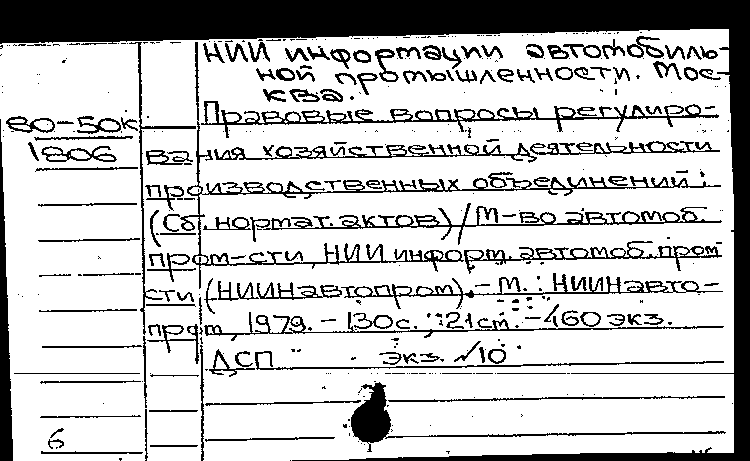 НИИ информации автомобиль-
ной промышленности. Мос-
ква.
Правовые вопросы регулиро-
80-50к
1806
вания хозяйственной деятельности
производственных объединений:
(Сб. нормат. актов) / М-во автомоб.
пром-сти, НИИ информ. автомоб. пром
сти (НИИНавтопром). - М. : НИИНавто-
пром, 1979. - 130 с.; 21 см. - 460 экз.
ДСП экз. №10
6